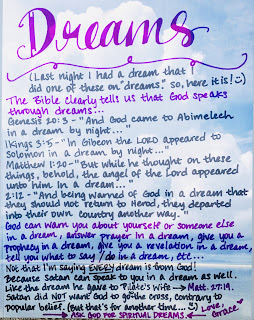 Dreams
(Last night I had a dream that I
did one of these on "dreams." so, here it is! :)
The Bible clearly tells us that God speaks
through dreams...
Genesis 20:3 - "And God came to Abimelech
in a dream by night..."
1 Kings 3:5 - "In Gibeon the LORD appeared to
Solomon in a dream by night..."
Matthew 1:20 - "But while he thought on these
things, behold, the angel of the Lord appeared
unto him in a dream..."
2:12 - "And being warned of God in a dream that
they should not return to Herod, they departed
into their own country another way."
God can warn you about yourself or someone else
in a dream, answer prayer in a dream, give you a
Prophecy in a dream, give you a revelation in a dream,
tell you what to say / do in a dream, etc...
Not that I'm saying EVERY dream is from God!
Because Satan can speak to you in a dream as well.
Like the dream he gave to Pilate's wife → Matt. 27:19.
Satan did NOT want God to go the cross, contrary to
popular belief. (But that's for another time... :)
→ ASK GOD FOR SPIRITUAL DREAMS ←
Love,
Grace